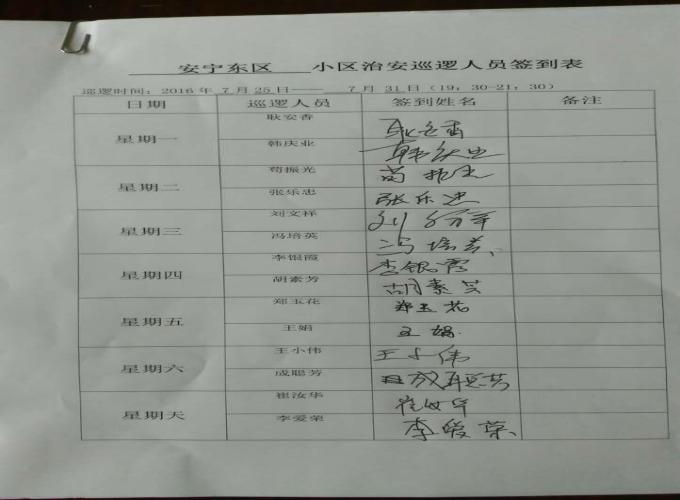 安宁东区 小区治安巡逻人员签到表
巡逻时间：2016 年 7 月 25 日—— 7 月 31 日（19：30-21：30）
日期 巡逻人员 签到姓名 备注
星期一 耿安香 耿安香
韩庆业 韩庆业
星期二 苟振光 苟振光
张乐忠 张乐忠
星期三 刘文祥 刘文祥
冯培英 冯培英
星期四 李银霞 李银霞
胡素芳 胡素芳
星期五 郑玉花 郑玉花
王娟 王娟
星期六 王小伟 王小伟
成聪芳 成聪芳
星期天 崔汝华 崔汝华
李爱荣 李爱荣